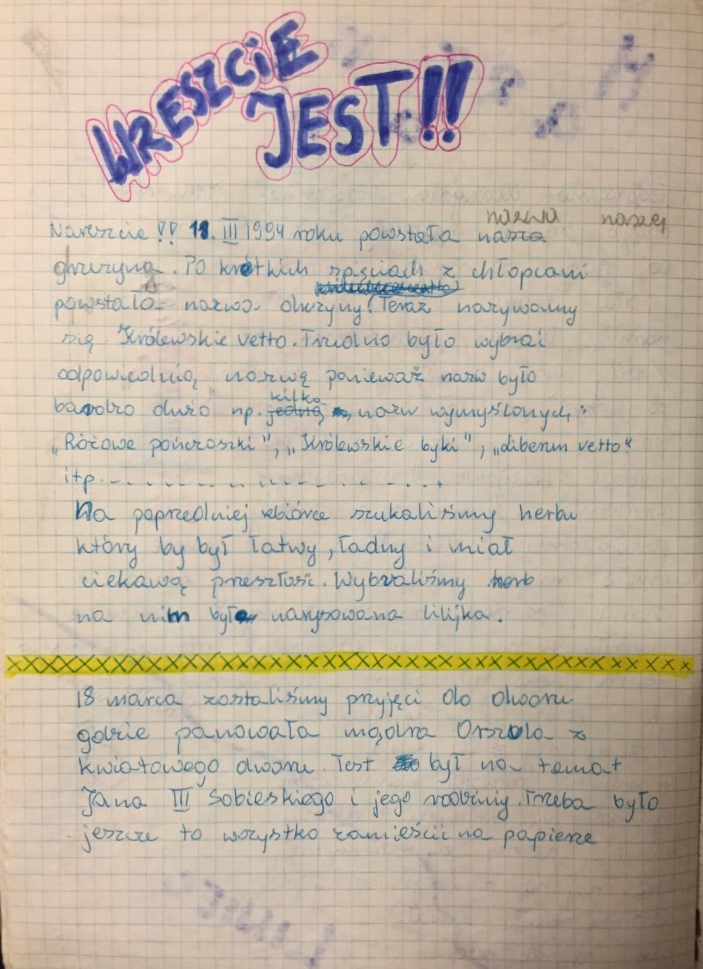 WRESZCIE
JEST!!
nazwa naszej
Nareszcie!! 18. III 1994 roku powstała nasza
drużyna. Po krótkich spięciach z chłopcami
powstała nazwa drużyny. Teraz nazywamy
się Królewskie vetto. Trudno było wybrać
odpowiednią nazwę ponieważ nazw było
bardzo dużo np. jedną kilka nazw wymyślonych:
"Różowe pończoszki", "Królewskie byki", "liberum vetto"
itp. . . . . . . . . . . . . . . . . . .
Na poprzedniej zbiórce szukaliśmy herbu
który by był łatwy, ładny i miał
ciekawą przeszłość. Wybraliśmy herb
na nim była narysowana lilijka.
18 marca zostaliśmy przyjęci do dworu
gdzie panowała mądra Orszula z
kwiatowego dworu. Test był na temat
Jana III Sobieskiego i jego rodziny. Trzeba było
jeszcze to wszystko zamieścić na papierze